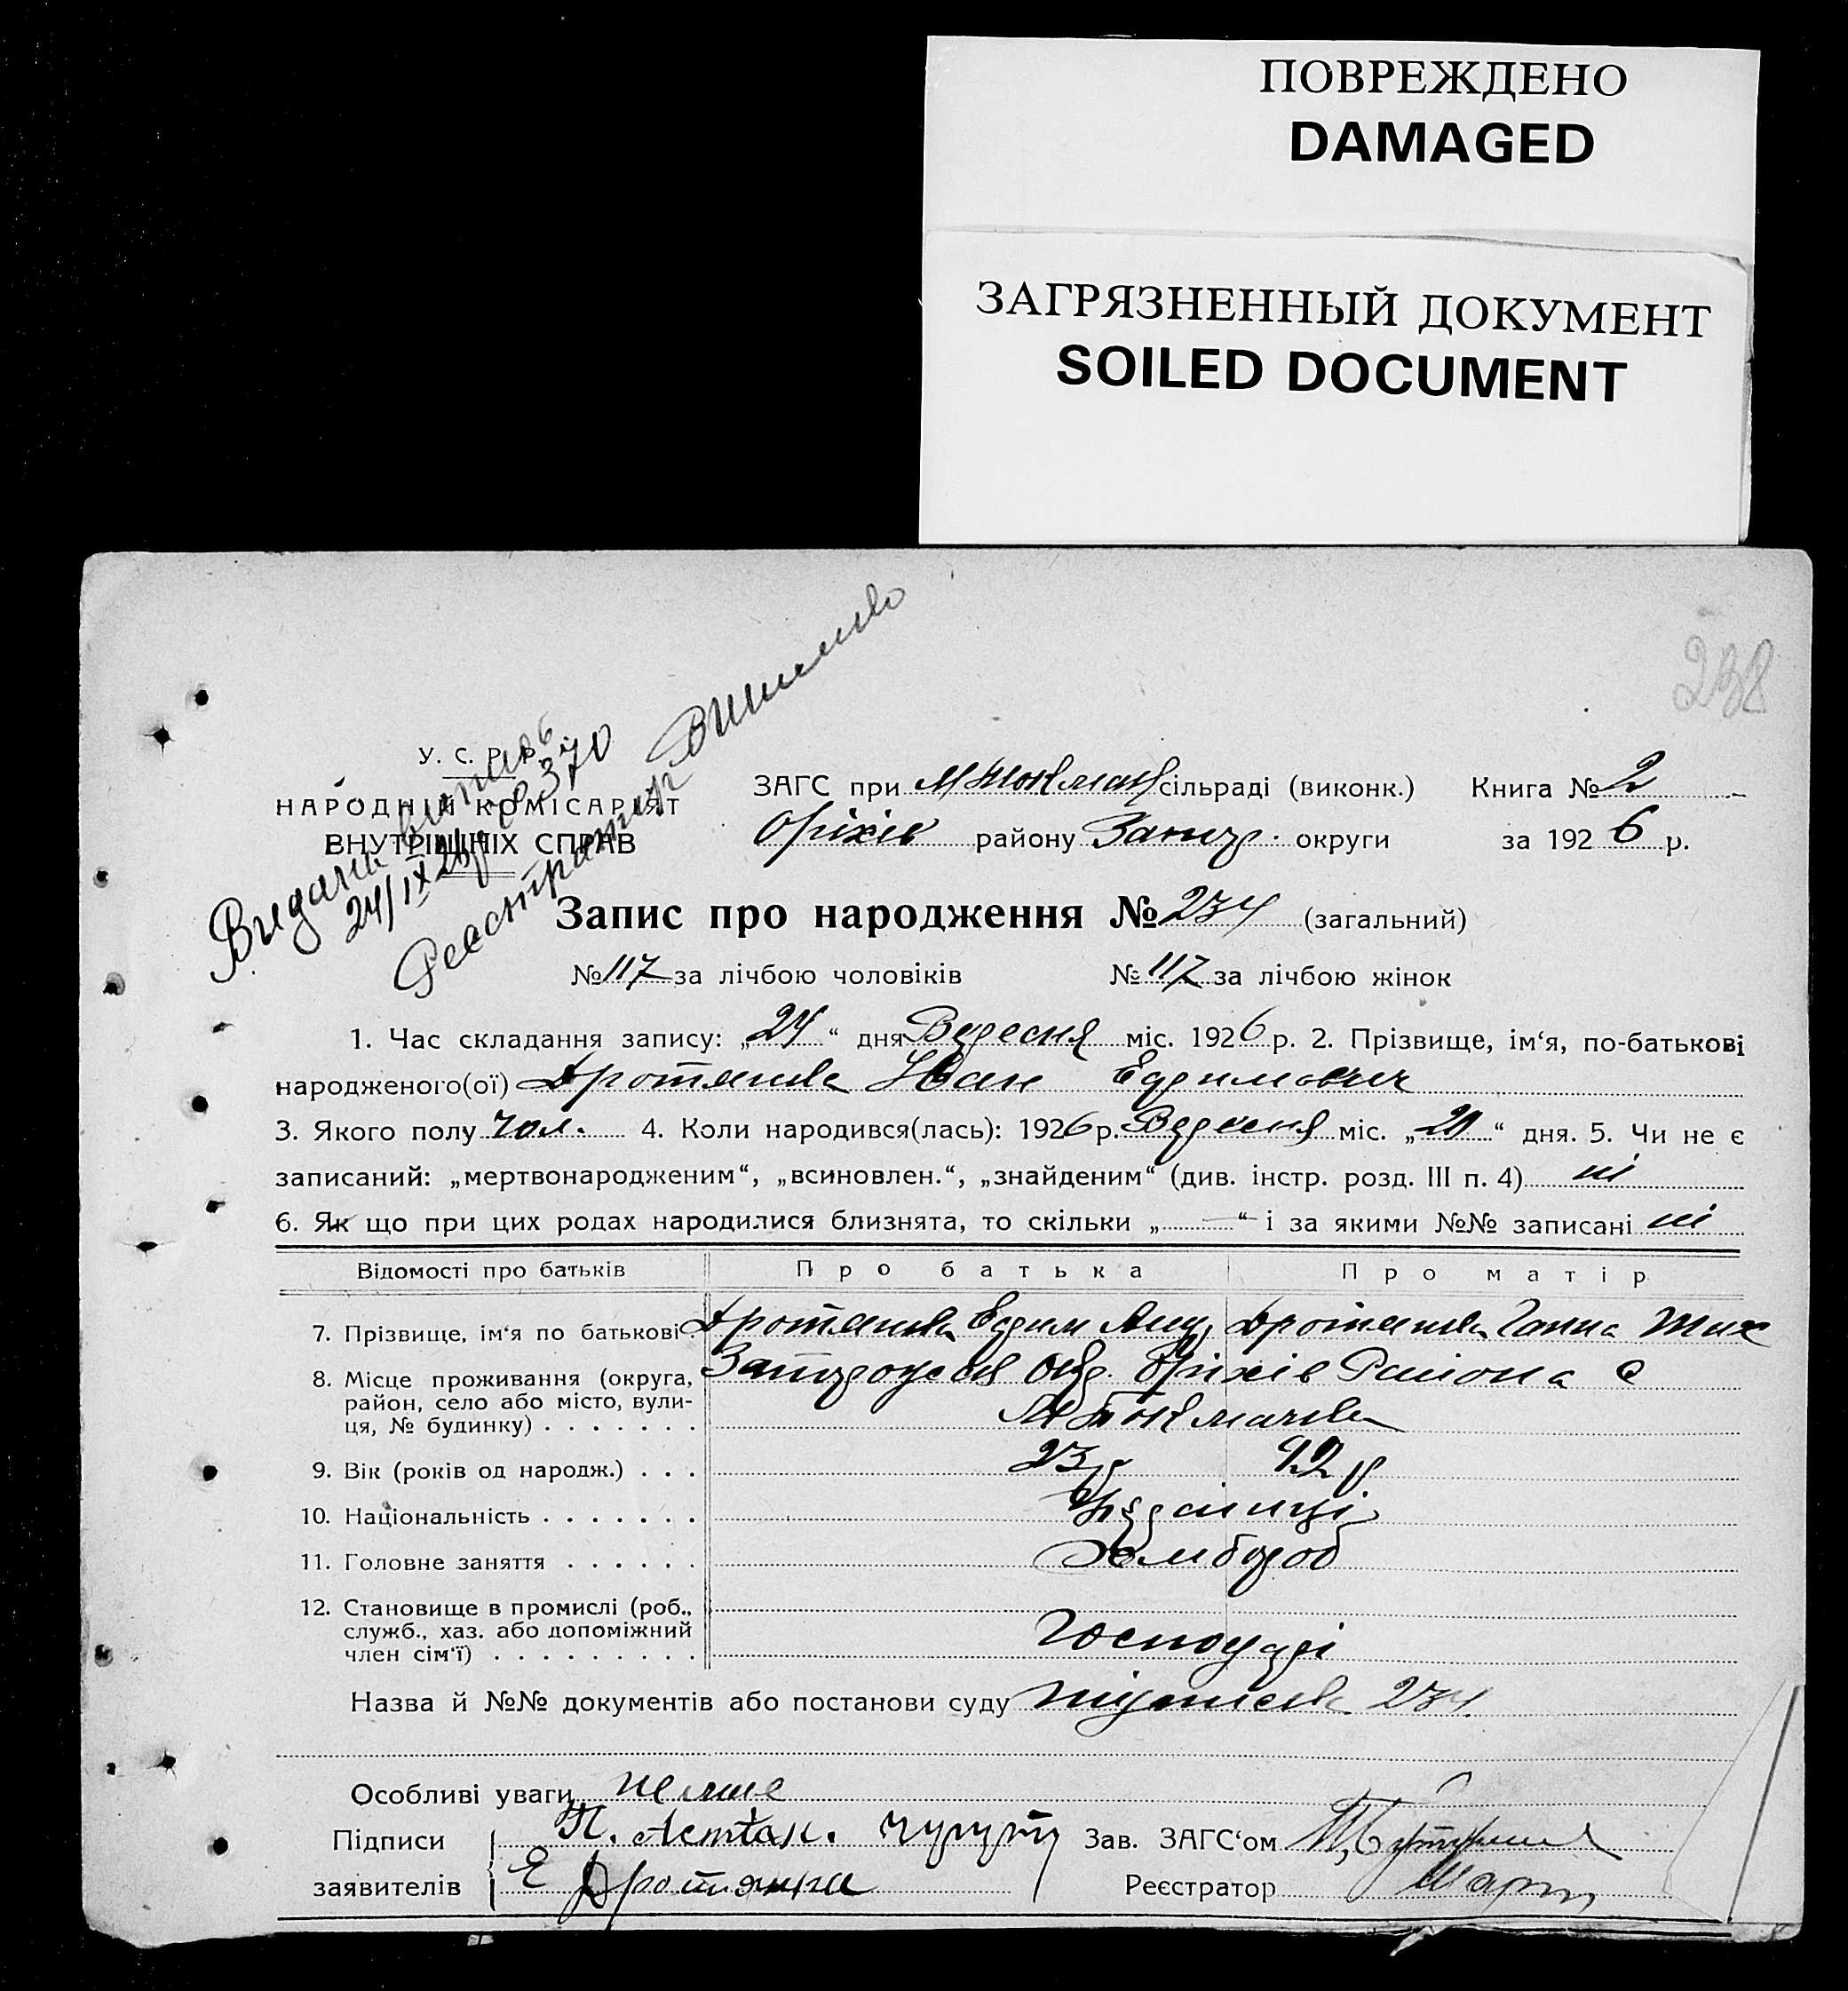 ПОВРЕЖДЕНО
DAMAGED
ЗАГРЯЗНЕННЫЙ ДОКУМЕНТ
SOILED DOCUMENT
238
У. С. Р. Р.
НАРОДНИЙ КОМІСАРІЯТ
ВНУТРІШНІХ СПРАВ
24/IX 370
ЗАГС при М Токмач сільраді (виконк.) Книга № 2
Оріхів району Запор. округи за 1926 р.
Запис про народження № 234 (загальний)
№ 117 за лічбою чоловіків № 117 за лічбою жінок
1. Час складання запису: „24“ дня Вересня міс. 1926 р. 2. Прізвище, ім‘я, по-батькові
народженого(ої) Дротянка Іван Ефимович
3. Якого полу чол. 4. Коли народився(лась): 1926 р. Вересня міс. „20“ дня. 5. Чи не є
записаний: „мертвонародженим“, „всиновлен.“, „знайденим“ (див. інстр. розд. III п. 4) ні
6. Як що при цих родах народилися близнята, то скільки „—“ і за якими №№ записані ні
Відомості про батьків Про батька Про матір
7. Прізвище, ім‘я по батькові Дротянка Ефим Дротянка Ганна Тих
8. Місце проживання (округа, Запорожск Окр. Оріхів Района с
район, село або місто, вули-
ця, № будинку) М Токмачка
9. Вік (років од народж.) 23 р 22 р
10. Національність Українці
11. Головне заняття Хлибороб
12. Становище в промислі (роб.,
служб., хаз. або допоміжний
член сім‘ї) Господарі
Назва й №№ документів або постанови суду підписка 234.
Особливі уваги немае
Підписи
заявителів Е Дротянка
Зав. ЗАГС‘ом
Реєстратор